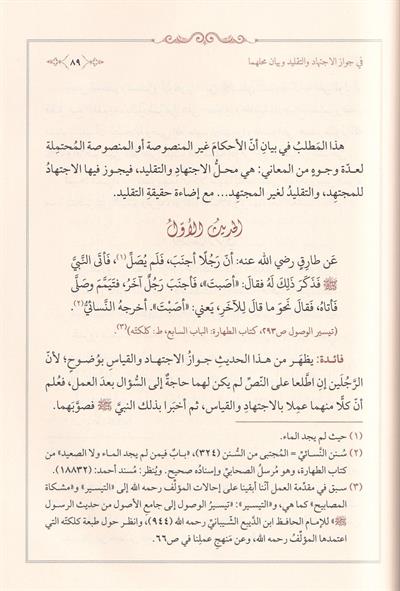 في جواز الاجتهاد والتقليد وبيان محلهما
٨٩
هذا المَطلبُ في بيانِ أنّ الأحكامَ غير المنصوصة أو المنصوصة المُحتمِلة
لعدّة وجوهٍ من المعاني: هي محلُّ الاجتهادِ والتقليد، فيجوز فيها الاجتهادُ
للمجتهِد، والتقليدُ لغير المجتهِد... مع إضاءة حقيقةِ التقليد.
الحديث الأوّل
عَن طارِقٍ رضي الله عنه: أنّ رَجُلًا أجنَبَ، فَلَم يُصَلِّ(١)، فأتَى النَّبيَّ
ﷺ فَذَكَرَ ذَلِكَ لَهُ فقالَ: «أصَبتَ»، فأجنَبَ رَجُلٌ آخَرُ، فتَيَمَّمَ وصَلَّى
فَأتاهُ، فَقالَ نَحوَ ما قالَ لِلآخَرِ، يَعني: «أصَبْتَ». أخرجهُ النَّسائيُّ(٢).
(تيسير الوصول ص٢٩٣، كتاب الطهارة: الباب السابع، ط: كلكتّه)(٣).
فائدة: يظهَر من هذا الحديثِ جوازُ الاجتهاد والقياسِ بوُضوح؛ لأنّ
الرَّجُلَين إن اطّلعا على النّصّ لم يكن لهما حاجةٌ إلى السُّؤال بعدَ العمل، فعُلم
أنّ كلًّا منهما عمِلا بالاجتهاد والقياس، ثم أخبَرا بذلك النبيَّ ﷺ فصوَّبهما.
(١) حيث لم يجد الماء.
(٢) سُنن النَّسائيِّ = المُجتبى من السُّنن (٣٢٤)، «بابٌ فيمن لم يجد الماء ولا الصعيد» من
كتاب الطهارة، وهو مُرسلُ الصحابيِّ وإسنادُه صحيح. ويُنظر: مُسند أحمد: (١٨٨٣٢)
(٣) سبق في مقدّمة العمل أنّنا أبقينا على إحالات المؤلِّف رحمه الله إلى «التيسير» و«مشكاة
المصابيح» كما هي، و«التيسير»: «تيسيرُ الوصول إلى جامع الأصول من حديث الرسول
ﷺ» للإمام الحافظ ابن الدَّيبع الشّيبانيِّ رحمه الله (٩٤٤)، وانظر حول طبعة كلكتّه التي
اعتمدها المؤلِّف رحمه الله، وعن منهج عملِنا في ص٦٦.